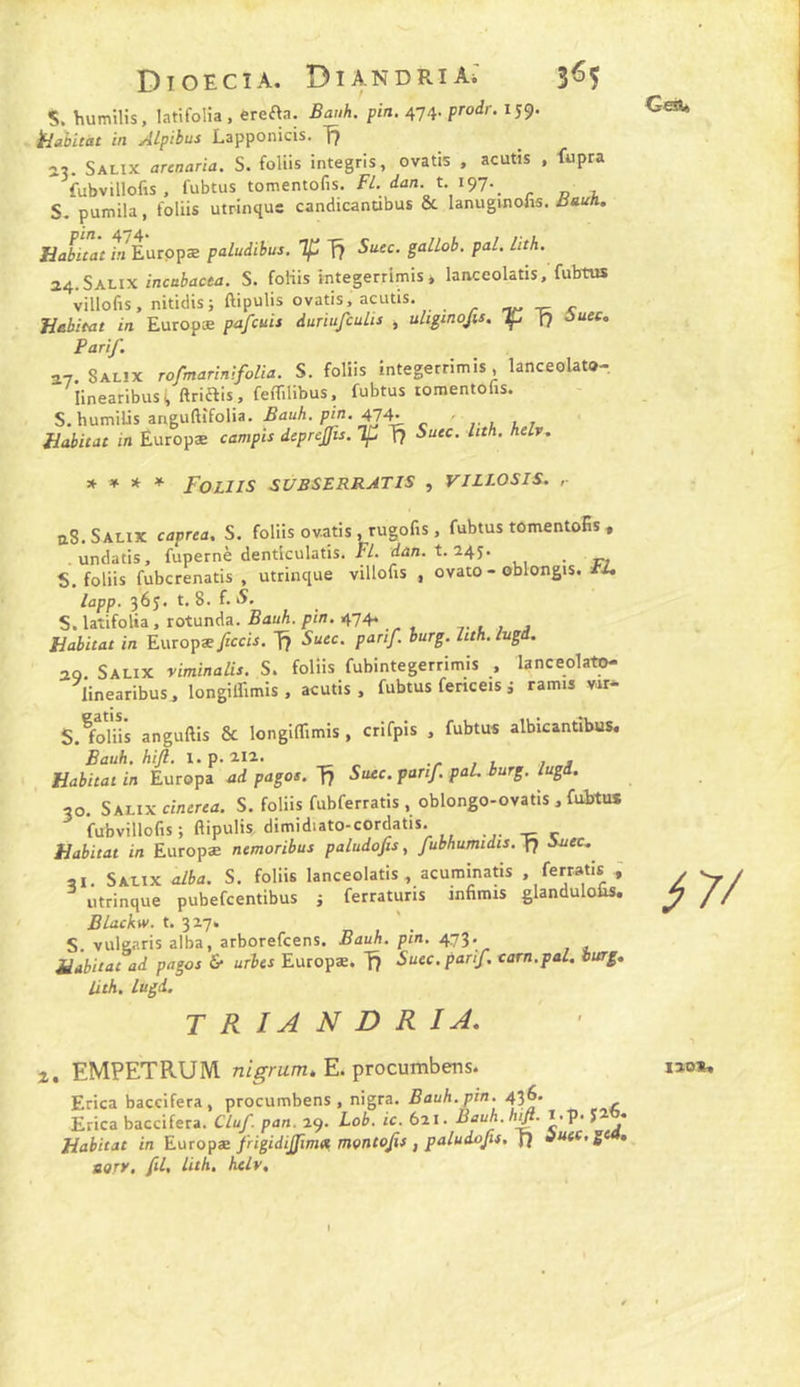 DIOECIA. DIANDRIA. 365
S. humilis, latifolia, erećta. Bauh. pin. 474. prodr. 159.
Habitat in Alpibus Lapponicis. ♄
23. SALIX arenaria. S. foliis integris, ovatis, acutis, ſupra
ſubvilloſis, ſubtus tomentoſis. Fl. dan. t. 197.
S. pumila, foliis utrinque candicantibus & lanuginoſis. Bauh.
pin. 474.
Habitat in Europæ paludibus. ♃ ♄ Suec. gallob. pal. lith.
24. SALIX incubacea. S. foliis integerrimis, lanceolatis, ſubtus
villoſis, nitidis; ſtipulis ovatis, acutis.
Habitat in Europæ paſcuis duriuſculis, uliginoſis. ♃ ♄ Suec.
Pariſ.
27. SALIX roſmarinifolia. S. foliis integerrimis, lanceolato-
linearibus, ſtrictis, ſeſſilibus, ſubtus tomentoſis.
S. humilis anguſtifolia. Bauh. pin. 474.
Habitat in Europæ campis depreſſis. ♃ ♄ Suec. lith. helv.
* * * * FOLIIS SUBSERRATIS, VILLOSIS.
28. SALIX caprea. S. foliis ovatis, rugoſis, ſubtus tomentoſis,
undatis, ſupernè denticulatis. Fl. dan. t. 245.
S. foliis ſubcrenatis, utrinque villoſis, ovato-oblongis. Fl.
lapp. 365. t. 8. f. S.
S. latifolia, rotunda. Bauh. pin. 474.
Habitat in Europæ ſiccis. ♄ Suec. pariſ. burg. lith. lugd.
29. SALIX viminalis. S. foliis ſubintegerrimis, lanceolato-
linearibus, longiſſimis, acutis, ſubtus ſericeis; ramis vir-
gatis.
S. foliis anguſtis & longiſſimis, criſpis, ſubtus albicantibus.
Bauh. hiſt. 1. p. 212.
Habitat in Europa ad pagos. ♄ Suec. pariſ. pal. burg. lugd.
30. SALIX cinerea. S. foliis ſubſerratis, oblongo-ovatis, ſubtus
ſubvilloſis; ſtipulis dimidiato-cordatis.
Habitat in Europæ nemoribus paludoſis, ſubhumidis. ♄ Suec.
31. SALIX alba. S. foliis lanceolatis, acuminatis, ſerratis,
utrinque pubeſcentibus; ſerraturis infimis glanduloſis.
Blackw. t. 327.
S. vulgaris alba, arboreſcens. Bauh. pin. 473.
Habitat ad pagos & urbes Europæ. ♄ Suec. pariſ. carn. pal. burg.
lith. lugd.
TRIANDRIA.
2. EMPETRUM nigrum. E. procumbens.
Erica baccifera, procumbens, nigra. Bauh. pin. 436.
Erica baccifera. Cluſ. pan. 29. Lob. ic. 621. Bauh. hiſt. 1. p. 526.
Habitat in Europæ frigidiſſimæ montoſis, paludoſis. ♄ Suec. ged.
norv. ſil. lith. helv.
571